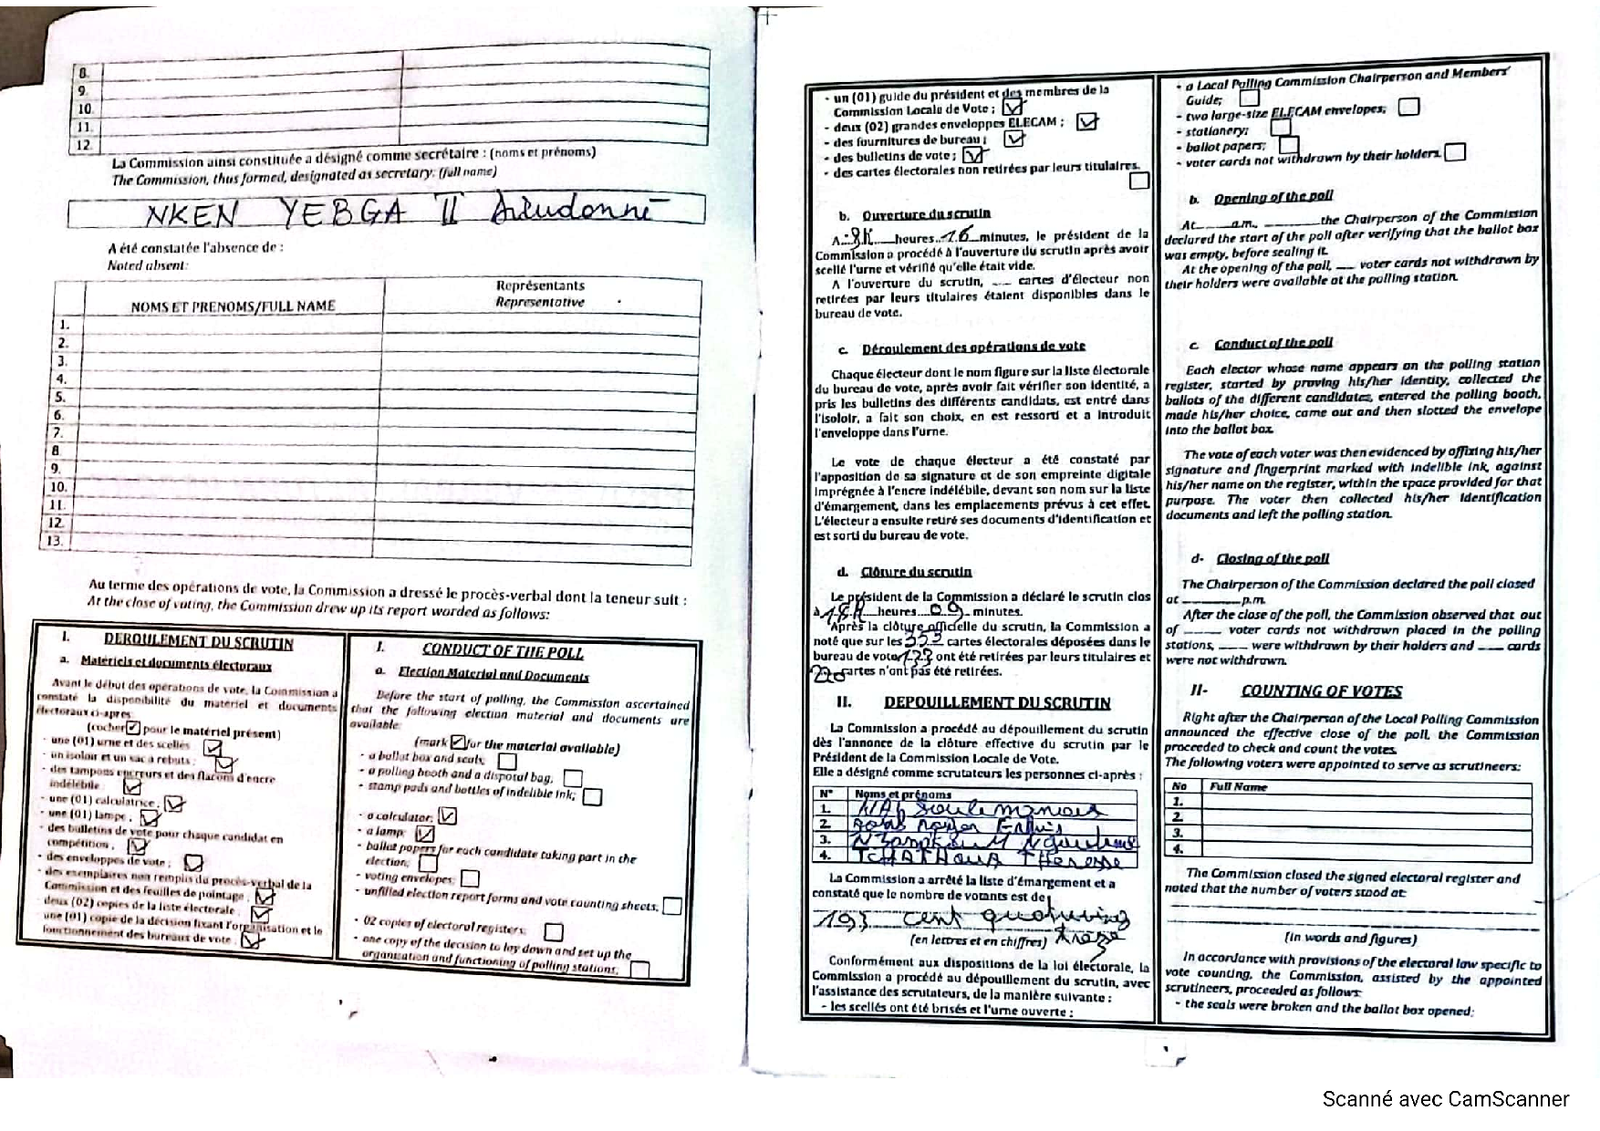 8.
9.
10.
11.
12.
La Commission ainsi constituée a désigné comme secrétaire : (noms et prénoms)
The Commission, thus formed, designated as secretary: (full name)
NKEN YEBGA II Dieudonné
A été constatée l'absence de :
Noted absent:
NOMS ET PRENOMS/FULL NAME
Représentants
Representative
1.
2.
3.
4.
5.
6.
7.
8
9.
10.
11.
12.
13.
Au terme des opérations de vote, la Commission a dressé le procès-verbal dont la teneur suit :
At the close of voting, the Commission drew up its report worded as follows:
I. DEROULEMENT DU SCRUTIN
a. Matériels et documents électoraux
Avant le début des opérations de vote, la Commission a
constaté la disponibilité du matériel et documents
électoraux ci-après
(cocher ☑ pour le matériel présent)
- une (01) urne et des scellés ☑
- un isoloir et un sac à rebuts : ☑
- des tampons encreurs et des flacons d'encre
indélébile : ☑
- une (01) calculatrice ; ☑
- une (01) lampe ; ☑
- des bulletins de vote pour chaque candidat en
compétition ; ☑
- des enveloppes de vote ; ☑
- des exemplaires non remplis du procès-verbal de la
Commission et des feuilles de pointage ; ☑
deux (02) copies de la liste électorale ; ☑
une (01) copie de la décision fixant l'organisation et le
fonctionnement des bureaux de vote ; ☑
I. CONDUCT OF THE POLL
a. Election Material and Documents
Before the start of polling, the Commission ascertained
that the following election material and documents are
available:
(mark ☑ for the material available)
- a ballot box and seals; ☐
- a polling booth and a disposal bag, ☐
- stamp pads and bottles of indelible ink; ☐
- a calculator; ☑
- a lamp; ☑
- ballot papers for each candidate taking part in the
election; ☐
- voting envelopes; ☐
- unfilled election report forms and vote counting sheets; ☐
- 02 copies of electoral registers; ☐
- one copy of the decision to lay down and set up the
organization and functioning of polling stations; ☐
- un (01) guide du président et des membres de la
Commission Locale de Vote ; ☑
- deux (02) grandes enveloppes ELECAM ; ☑
- des fournitures de bureau ; ☑
- des bulletins de vote ; ☑
- des cartes électorales non retirées par leurs titulaires.
☐
b. Ouverture du scrutin
A 8h heures 16 minutes, le président de la
Commission a procédé à l'ouverture du scrutin après avoir
scellé l'urne et vérifié qu'elle était vide.
A l'ouverture du scrutin, ___ cartes d'électeur non
retirées par leurs titulaires étaient disponibles dans le
bureau de vote.
c. Déroulement des opérations de vote
Chaque électeur dont le nom figure sur la liste électorale
du bureau de vote, après avoir fait vérifier son identité, a
pris les bulletins des différents candidats, est entré dans
l'isoloir, a fait son choix, en est ressorti et a introduit
l'enveloppe dans l'urne.
Le vote de chaque électeur a été constaté par
l'apposition de sa signature et de son empreinte digitale
imprégnée à l'encre indélébile, devant son nom sur la liste
d'émargement, dans les emplacements prévus à cet effet.
L'électeur a ensuite retiré ses documents d'identification et
est sorti du bureau de vote.
d. Clôture du scrutin
Le président de la Commission a déclaré le scrutin clos
à 18h heures 09 minutes.
Après la clôture officielle du scrutin, la Commission a
noté que sur les cartes électorales déposées dans le
bureau de vote, ont été retirées par leurs titulaires et
cartes n'ont pas été retirées.
II. DEPOUILLEMENT DU SCRUTIN
La Commission a procédé au dépouillement du scrutin
dès l'annonce de la clôture effective du scrutin par le
Président de la Commission Locale de Vote.
Elle a désigné comme scrutateurs les personnes ci-après :
N° Noms et prénoms
1.
2.
3.
4. TCHATHOUA THERESSE
La Commission a arrêté la liste d'émargement et a
constaté que le nombre de votants est de
193 cent quatrevingt
(en lettres et en chiffres) treize
Conformément aux dispositions de la loi électorale, la
Commission a procédé au dépouillement du scrutin, avec
l'assistance des scrutateurs, de la manière suivante :
- les scellés ont été brisés et l'urne ouverte ;
- a Local Polling Commission Chairperson and Members'
Guide; ☐
- two large-size ELECAM envelopes; ☐
- stationery; ☐
- ballot papers; ☐
- voter cards not withdrawn by their holders. ☐
b. Opening of the poll
At______a.m, ________the Chairperson of the Commission
declared the start of the poll after verifying that the ballot box
was empty, before sealing it.
At the opening of the poll, ___ voter cards not withdrawn by
their holders were available at the polling station.
c. Conduct of the poll
Each elector whose name appears on the polling station
register, started by proving his/her identity, collected the
ballots of the different candidates, entered the polling booth,
made his/her choice, came out and then slotted the envelope
into the ballot box.
The vote of each voter was then evidenced by affixing his/her
signature and fingerprint marked with indelible ink, against
his/her name on the register, within the space provided for that
purpose. The voter then collected his/her identification
documents and left the polling station.
d- Closing of the poll
The Chairperson of the Commission declared the poll closed
at ________p.m.
After the close of the poll, the Commission observed that out
of _____ voter cards not withdrawn placed in the polling
stations, ____ were withdrawn by their holders and ____ cards
were not withdrawn.
II- COUNTING OF VOTES
Right after the Chairperson of the Local Polling Commission
announced the effective close of the poll, the Commission
proceeded to check and count the votes.
The following voters were appointed to serve as scrutineers:
No Full Name
1.
2.
3.
4.
The Commission closed the signed electoral register and
noted that the number of voters stood at:
(in words and figures)
In accordance with provisions of the electoral law specific to
vote counting, the Commission, assisted by the appointed
scrutineers, proceeded as follows:
- the seals were broken and the ballot box opened;
Scanné avec CamScanner